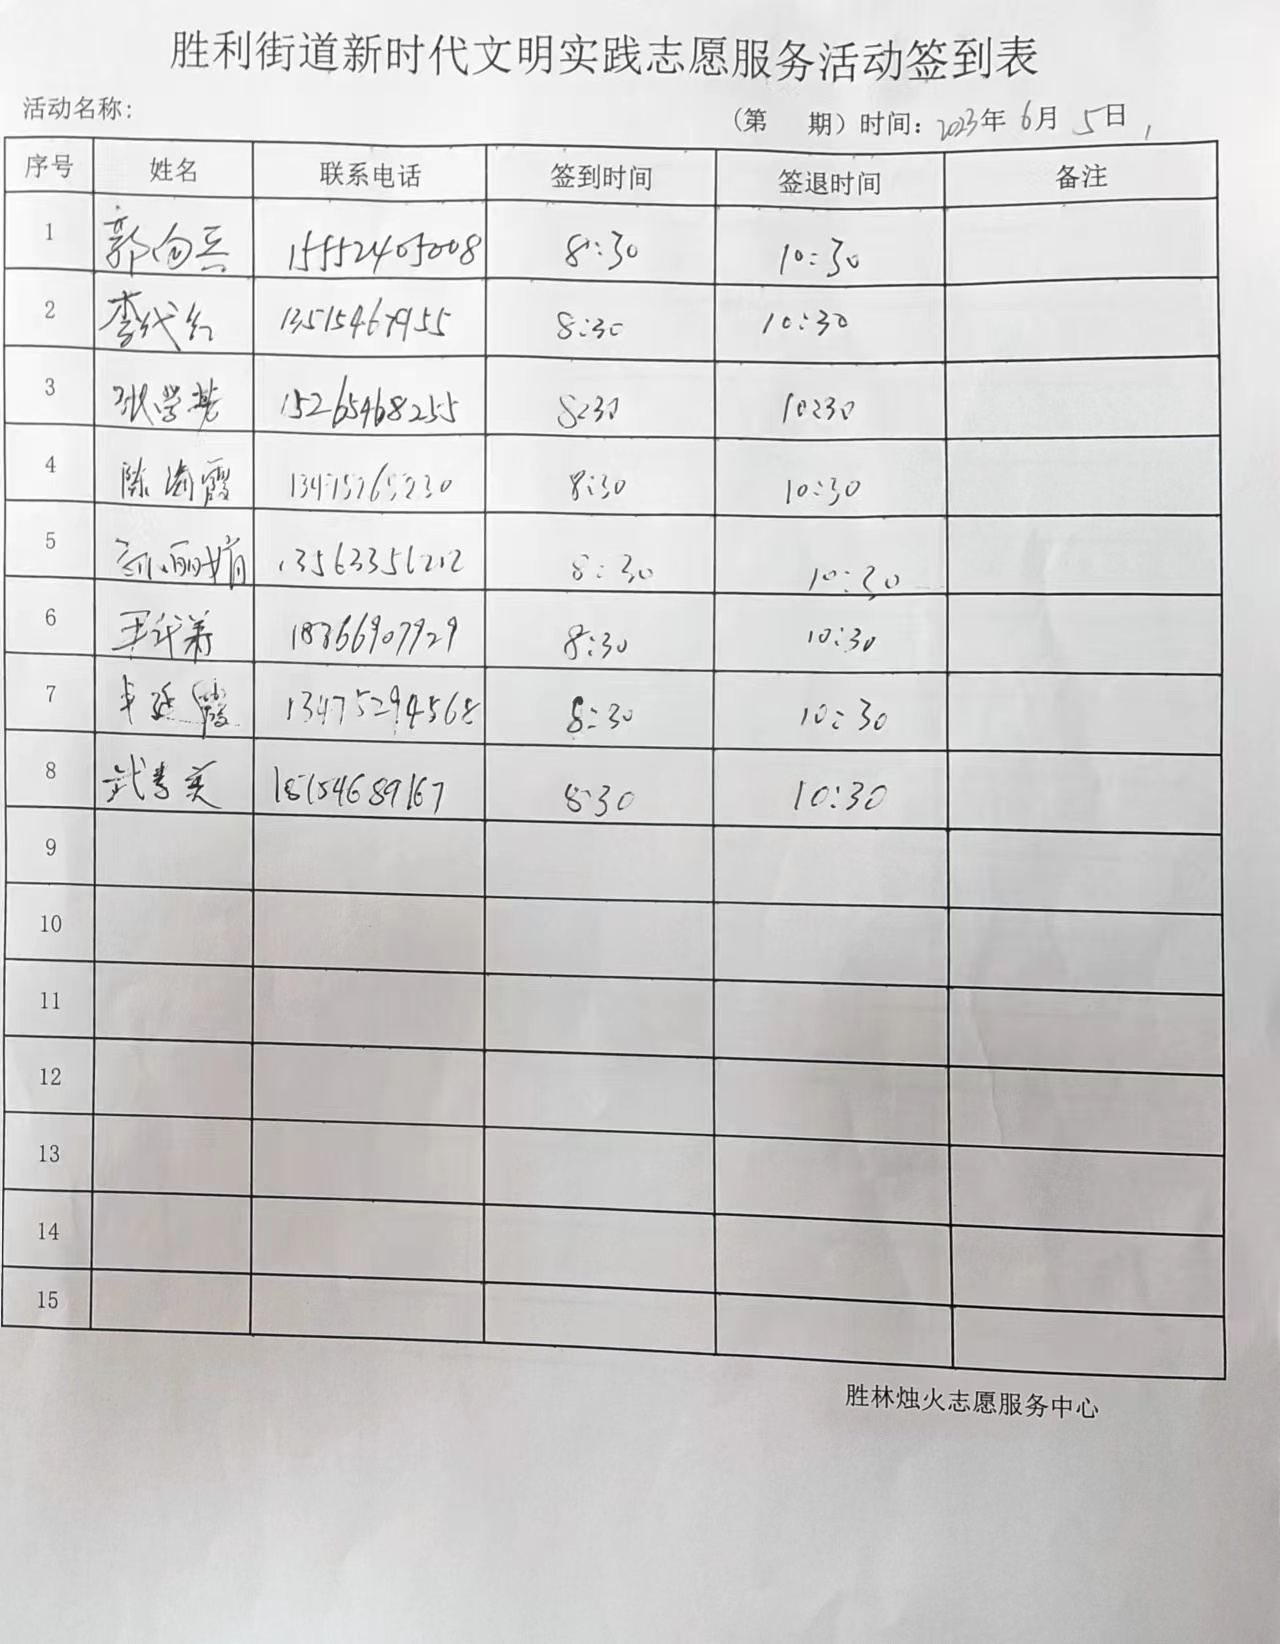 胜利街道新时代文明实践志愿服务活动签到表
活动名称: (第 期) 时间: 2023年 6月 5日
序号 姓名 联系电话 签到时间 签退时间 备注
1 郭向兵 15552405008 8:30 10:30
2 李代红 8:30 10:30
3 张学 15265468255 8:30 10:30
4 陈海霞 13475265230 8:30 10:30
5 丽娟 13563356212 8:30 10:30
6 王 18366907929 8:30 10:30
7 延霞 13475294568 8:30 10:30
8 武秀英 18154689167 8:30 10:30
9
10
11
12
13
14
15
胜林烛火志愿服务中心